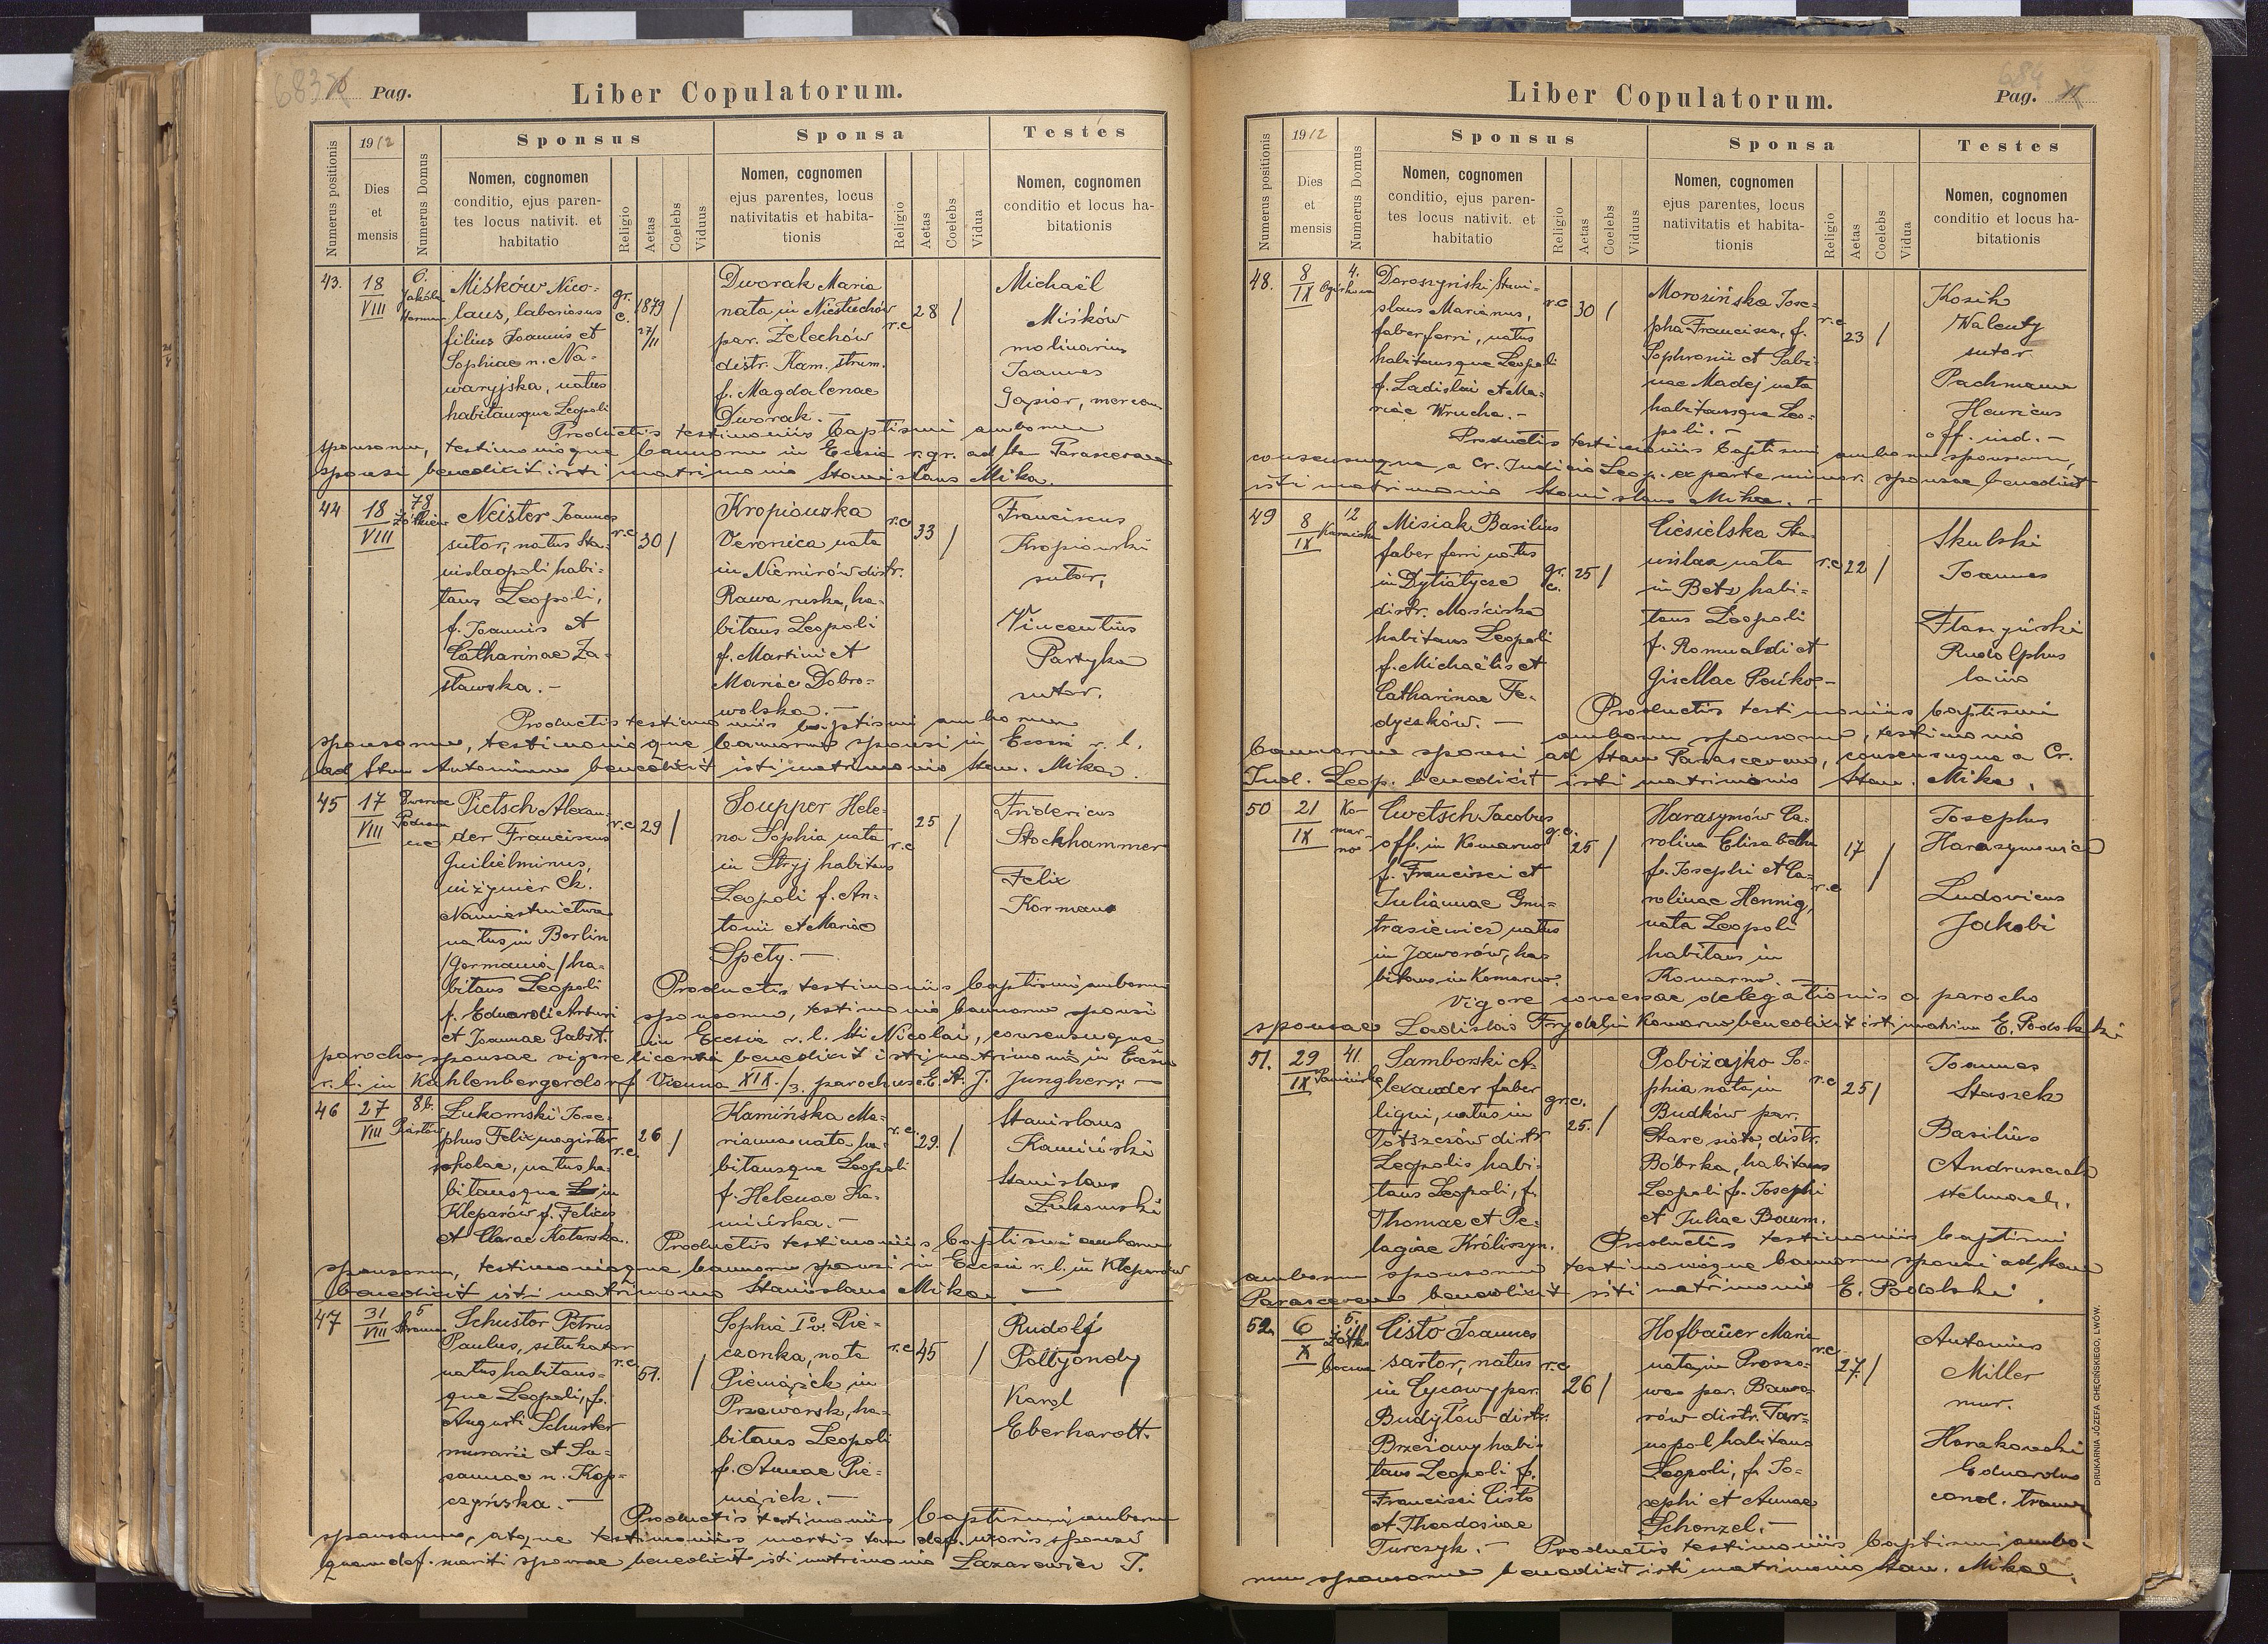 683 10 Pag.
Liber Copulatorum.
Numerus positionis
1912
Dies
et
mensis
Numerus Domus
Sponsus
Nomen, cognomen
conditio, ejus paren-
tes locus nativit. et
habitatio
Religio
Aetas
Coelebs
Viduus
Sponsa
Nomen, cognomen
ejus parentes, locus
nativitatis et habita-
tionis
Religio
Aetas
Coelebs
Vidua
Testes
Nomen, cognomen
conditio et locus ha-
bitationis
43.
18
VIII
6.
Jakóba
Miśków Nico-
laus, laboriosus
filius Joannis et
Sophiae n. Na-
waryjska, natus
habitansque Leopoli
gr.
c.
1879
27/11
/
Dworak Maria
nata in Niestuchów
par. Żelechów
distr. Kam. strum.
f. Magdalenae
Dworak. —
r.c
28
/
Michaël
Miśków
molinarius
Joannes
Gąsior,
Productis testimoniis baptismi amborum
sponsorum, testimonioque bannorum in Eccsia r. gr. ad Stm Parascevam
sponsi benedixit isti matrimonio Stanislaus Mika.
44
18
VIII
78
Neister Joannes
sutor, natus Sta-
nislaopoli habi-
tans Leopoli,
f. Joannis et
Catharinae Za-
stawska. —
r.c
30
/
Kropiowska
Veronica nata
in Niemirów distr.
Rawa ruska, ha-
bitans Leopoli
f. Martini et
Mariae Dobro-
wolska. —
r.c
33
/
Franciscus
Kropiowski
sutor,
Vincentius
Partyka
sutor.
Productis testimoniis baptismi amborum
sponsorum, testimonioque bannorum sponsi in Eccsia r. l.
ad Stm Antonium benedixit isti matrimonio Stan. Mika.
45
17
VIII
Pietsch Alexan-
der Franciscus
Guilielminus,
inżynier ck.
Namiestnictwa
natus in Berlin
/Germania/ ha-
bitans Leopoli
f. Eduardi Arturi
et Joannae Pabst.
r.c
29
/
Soupper Hele-
na Sophia nata
in Stryj habitans
Leopoli f. An-
tonii et Mariae
Spety. —
r.c
25
/
Fridericus
Stockhammer
Felix
Korman
Productis testimoniis baptismi amborum
sponsorum, testimonio bannorum sponsi
in Eccsia r. l. Sti Nicolai, consensuque
parocho sponsae vigore licentia benedixit isti matrimonio in Eccsia
r. l. in Kahlenbergerdorf Vienna XIX./3. parochus E. A. J. Jungherr. —
46
27
VIII
8b.
Piastów
Łukomski Jose-
phus Felix magister
scholae, natus ha-
bitansque in
Kleparów f. Felicis
et Clarae Kotarska.
r.c.
26
/
Kamińska Ma-
rianna nata ha-
bitansque Leopoli
f. Helenae Ka-
mińska. —
r.c.
29.
/
Stanislaus
Kamiński
Stanislaus
Łukomski
Productis testimoniis baptismi amborum
sponsorum, testimonioque bannorum sponsi in Eccsia r. l. in Kleparów
benedixit isti matrimonio Stanislaus Mika —
47
31
VIII
5
Schuster Petrus
Paulus, sztukator
natus habitans-
que Leopoli, f.
Augusti Schuster
murarii et Su-
sannae n. Kop-
czyńska. —
r.c
51.
/
Sophia I v. Pie-
czonka, nata
Piemążek in
Przeworsk, ha-
bitans Leopoli
f. Annae Pie-
mążek. —
r.c
45
/
Rudolf
Poltyondy
Karol
Eberhardt.
Productis testimoniis baptismi amborum
sponsorum, atque testimoniis mortis tam def. uxoris sponsi
quam def. mariti sponsae benedixit isti matrimonio Lazarewicz T.
684
Liber Copulatorum.
Pag. 11
Numerus positionis
1912
Dies
et
mensis
Numerus Domus
Sponsus
Nomen, cognomen
conditio, ejus paren-
tes locus nativit. et
habitatio
Religio
Aetas
Coelebs
Viduus
Sponsa
Nomen, cognomen
ejus parentes, locus
nativitatis et habita-
tionis
Religio
Aetas
Coelebs
Vidua
Testes
Nomen, cognomen
conditio et locus ha-
bitationis
48.
8
IX
4.
Doroszyński Stani-
slaus Marianus,
faber ferri, natus
habitansque Leopoli
f. Ladislai et Ma-
riae Wrucha. —
r.c
30
/
Morozińska Jose-
pha Francisca, f.
Sophronii et Sabi-
nae Madej nata
habitansque Leo-
poli. —
r.c
23
/
Kosik
Walenty
sutor
Pachmann
Henricus
off. ind. —
Productis testimoniis baptismi amborum sponsorum,
consensuque a Cr. Judicio Leop. ex parte minor. sponsae benedixit
isti matrimonio Stanislaus Mika. —
49
8
IX
12
Misiak Basilius
faber ferri natus
in Dytiatycze
distr. Mościska
habitans Leopoli
f. Michaëlis et
Catharinae Fe-
dyczków. —
gr.
c.
25
/
Ciesielska Sta-
nislaa nata
in Betz habi-
tans Leopoli
f. Romualdi et
Gisellae
r.c
22
/
Skulski
Joannes
Flaszyński
Rudolphus
Productis testimoniis baptismi
amborum sponsorum, testimonio
bannorum sponsi ad Stam Parascevam, consensuque a Cr.
Jud. Leop. benedixit isti matrimonio Stan. Mika.
50
21
IX
Ko-
mar-
no
Cwetsch Jacobus
off. in Komarno
f. Francisci et
Julianae Gnu-
trasiewicz natus
in Jaworów, ha-
bitans in Komarno.
gr.c.
25
/
Harasymów Ca-
rolina Elisabetha
f. Josephi et Ca-
rolinae Hennig,
nata Leopoli
habitans in
Komarno. —
r.c
17
/
Josephus
Harasymowicz
Ludovicus
Jakobi
Vigore concessae delegationis a parocho
sponsae Ladislao Frydel in Komarno benedixit isti matrim E. Podolski
51.
29
IX
41.
Samborski A-
lexander faber
ligni, natus in
Tołszczów distr
Leopolis habi-
tans Leopoli, f.
Thomae et Pe-
lagiae Króliszyn.
gr.c.
25.
/
Pobiżajko So-
phia nata in
Budków par.
Stare sioło, distr.
Bóbrka, habitans
Leopoli f. Josephi
et Juliae Baum.
r.c
25
/
Joannes
Staszek
Basilius
Andruszczak
stelmach.
Productis testimoniis baptismi
amborum sponsorum testimonioque bannorum sponsi ad Stam
Parascevam benedixit isti matrimonio E. Podolski.
52.
6
X
5.
Cisto Joannes
sartor, natus
in Cycowy par.
Budyłow distr.
Brzeżany habi-
tans Leopoli f.
Francisci Cisto
et Theodosiae
Turczyk. —
r.c
26
/
Hofbauer Maria
nata in Proszo-
wa par. Bawo-
rów distr. Tar-
nopol habitans
Leopoli, f. Jo-
sephi et Annae
Schenzel. —
r.c
27.
/
Antonius
Miller
mur.
Harakowski
Eduardus
cond. tramw
Productis testimoniis baptismi ambo-
rum sponsorum benedixit isti matrimonio Stan. Mika.
DRUKARNIA JÓZEFA CHĘCIŃSKIEGO, LWÓW.